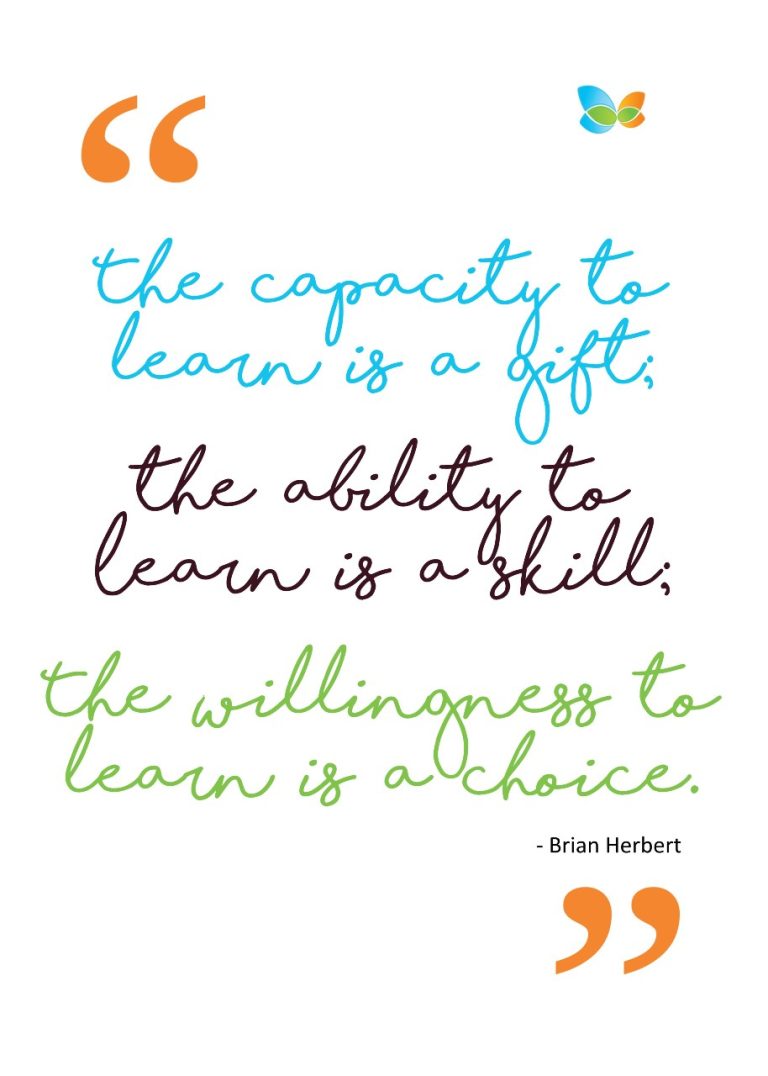 “
the capacity to
learn is a gift;
the ability to
learn is a skill;
the willingness to
learn is a choice.
- Brian Herbert
”